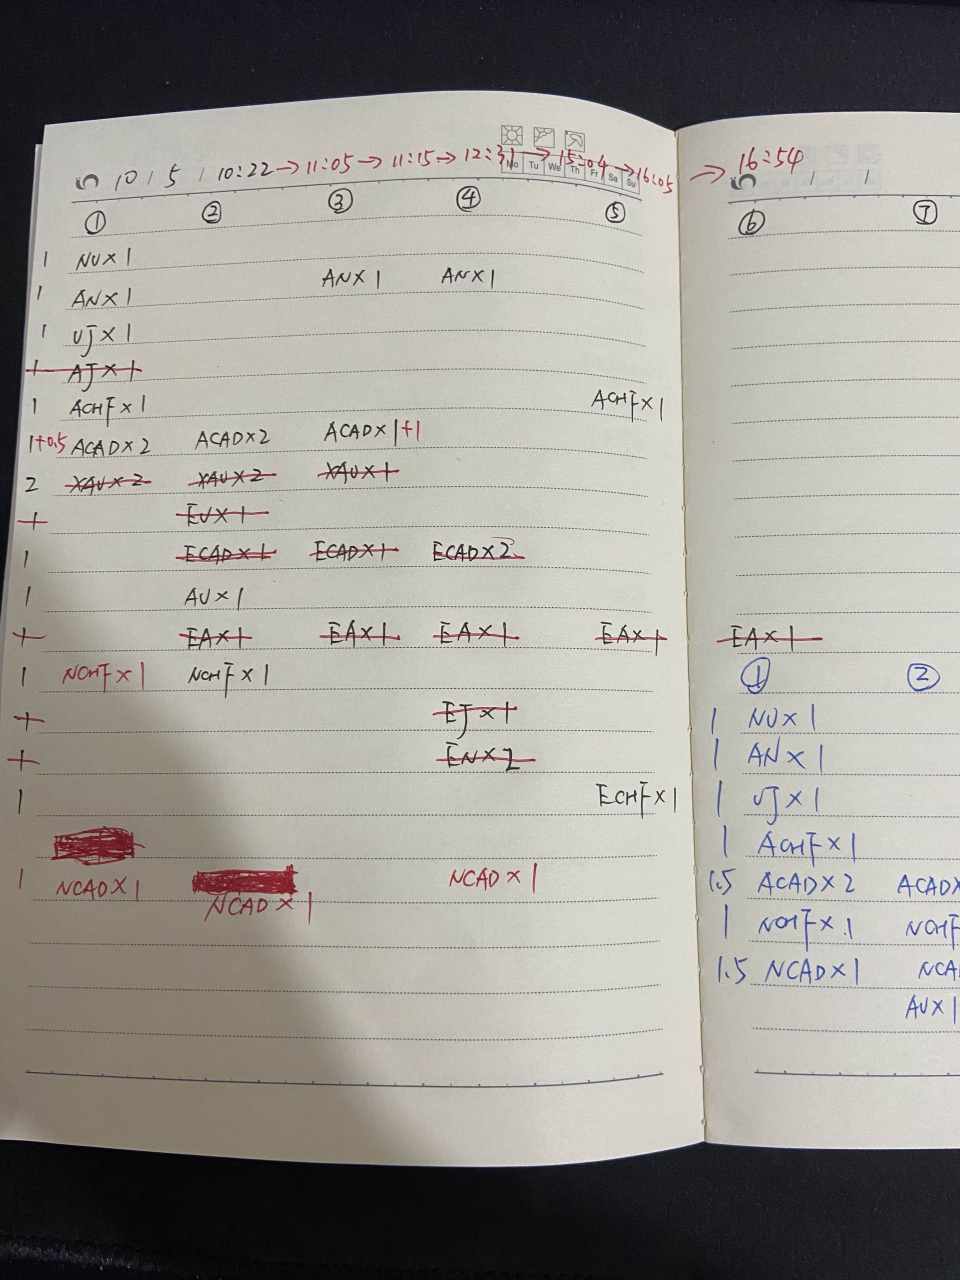 10 / 5 / 10:22→11:05→11:15→12:31→15:04→16:05 → 16:54
Mo Tu We Th Fr Sa Su
① ② ③ ④ ⑤
1 NU×1
1 AN×1 AN×1 AN×1
1 UJ×1
1 AJ×1
1 ACHF×1 ACHF×1
1+0.5 ACAD×2 ACAD×2 ACAD×1+1
2 XAU×2 XAU×2 XAU×1
1 EU×1
1 ECAD×1 ECAD×1 ECAD×2
1 AU×1
1 EA×1 EA×1 EA×1 EA×1
1 NCHF×1 NCHF×1
1 EJ×1
1 EN×2
1 ECHF×1
1 NCAD×1 NCAD×1 NCAD×1
⑥ ⑦
EA×1
① ②
1 NU×1
1 AN×1
1 UJ×1
1 ACHF×1
1.5 ACAD×2 ACAD×
1 NCHF×1 NCHF
1.5 NCAD×1 NCA
AU×1